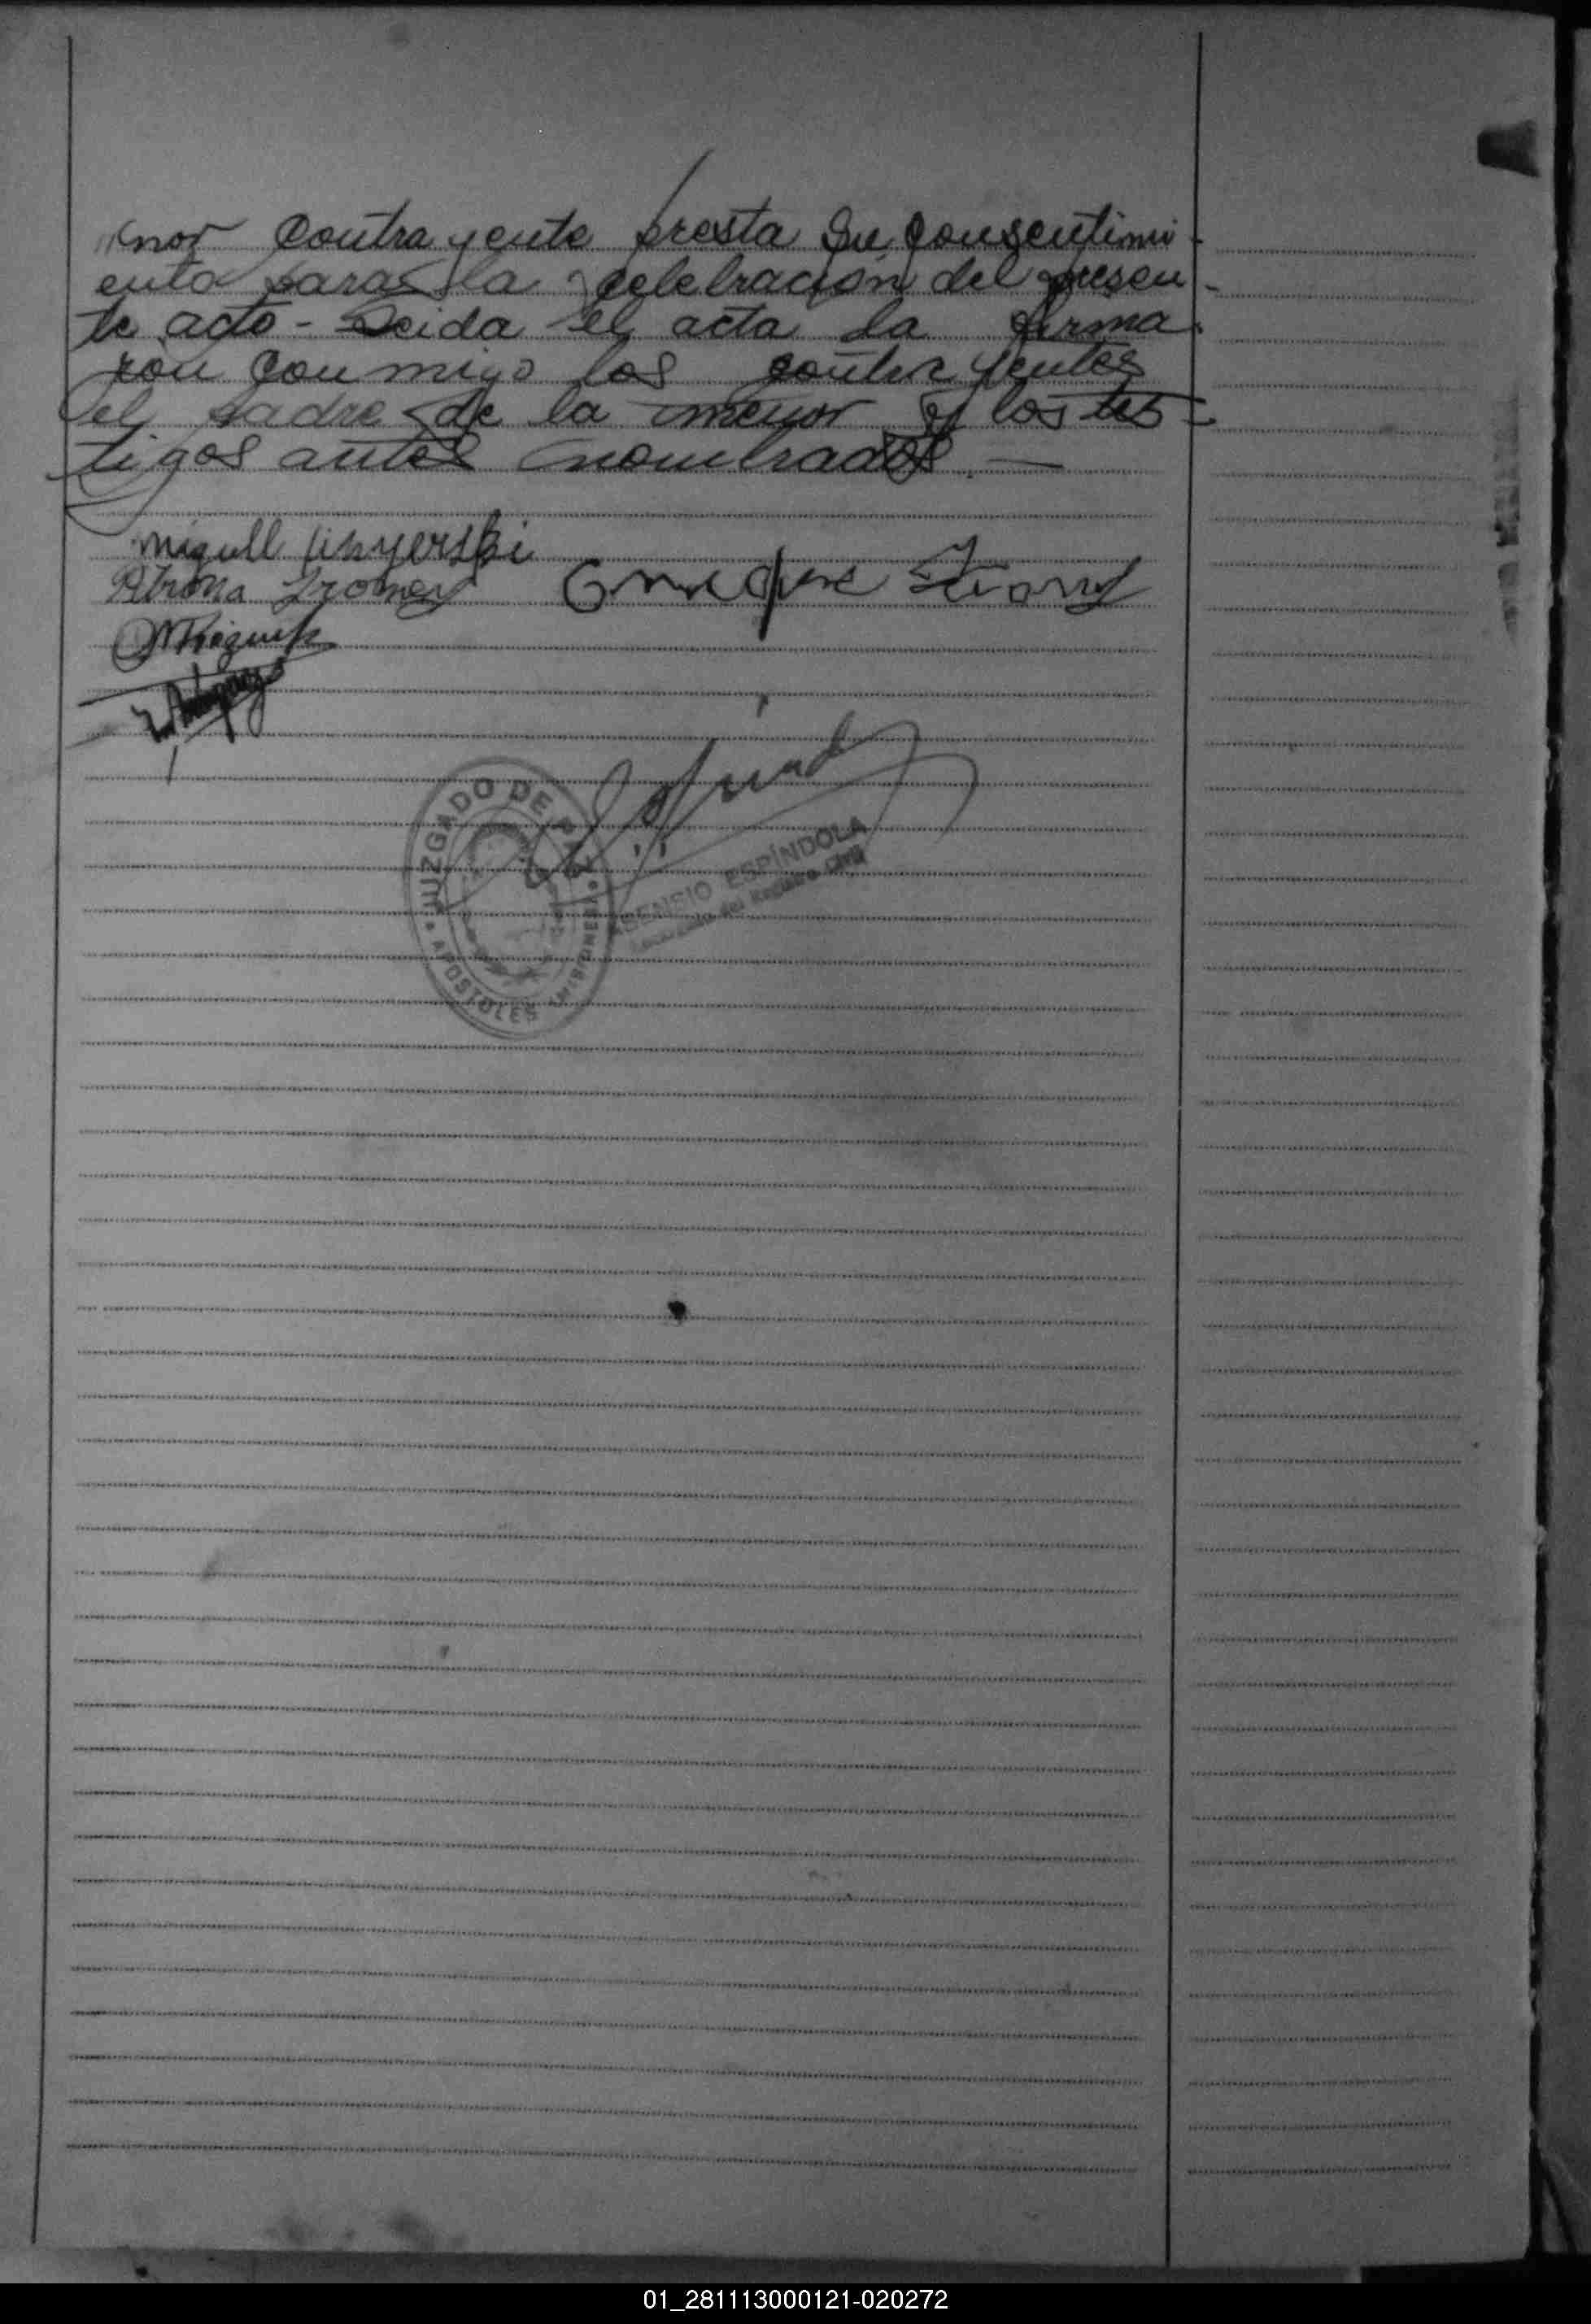 nor contrayente presta su consentimi-
ento para la celebracion del presen-
te acto - Leida el acta la firma-
ron conmigo los contrayentes
el padre de la menor y los tes-
tigos antes nombrados. —
Miguell
JUZGADO DE PAZ
APOSTOLES (MISIONES)
ASENSIO ESPÍNDOLA
Encargado del Registro Civil
01_281113000121-020272